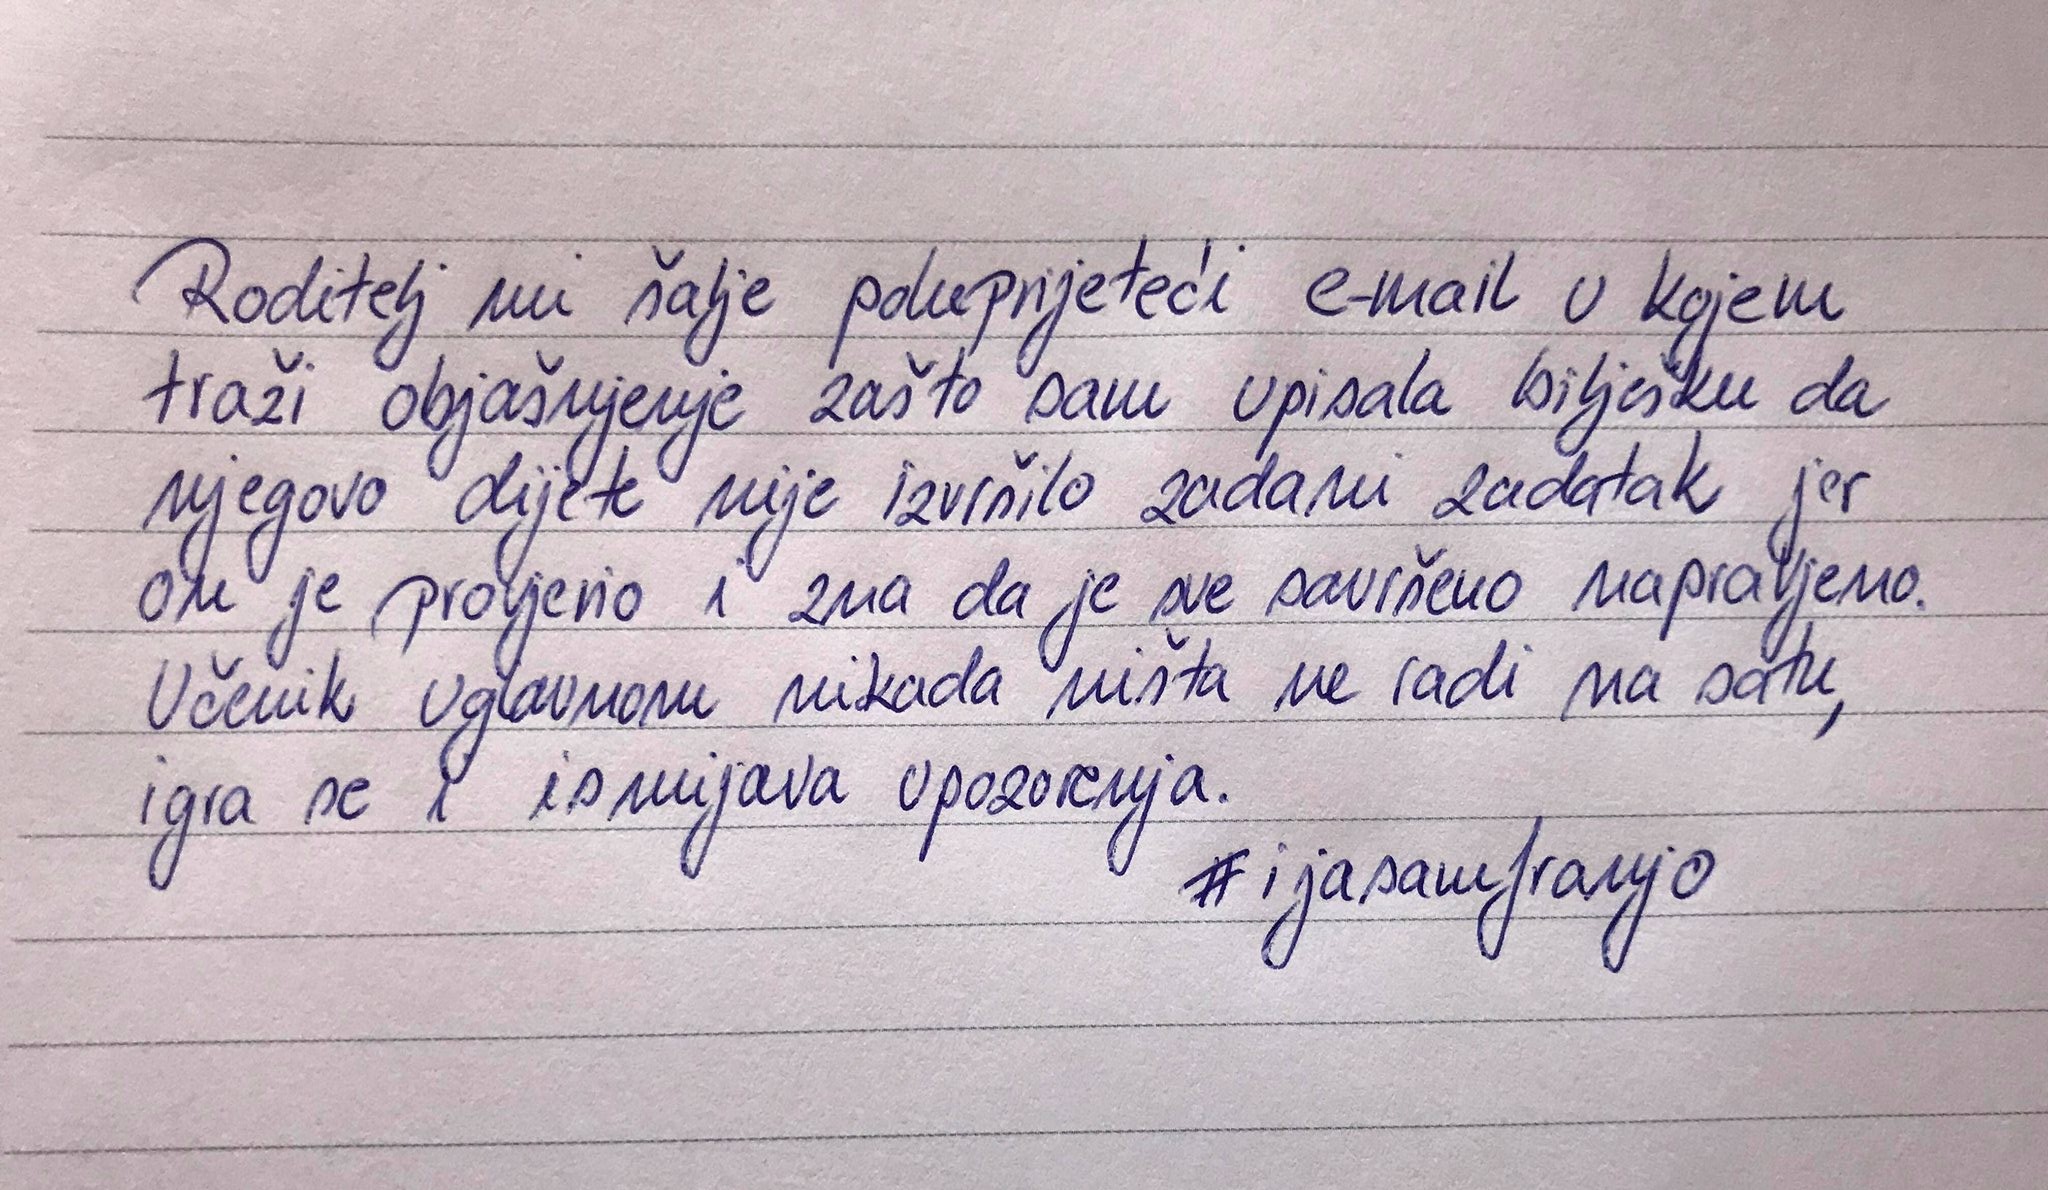 Roditelj mi šalje poluprijeteći e-mail u kojem
traži objašnjenje zašto sam upisala bilješku da
njegovo dijete nije izvršilo zadani zadatak jer
on je provjerio i zna da je sve savršeno napravljeno.
Učenik uglavnom nikada ništa ne radi na satu,
igra se i ismijava upozorenja.
#ijasamfranjo